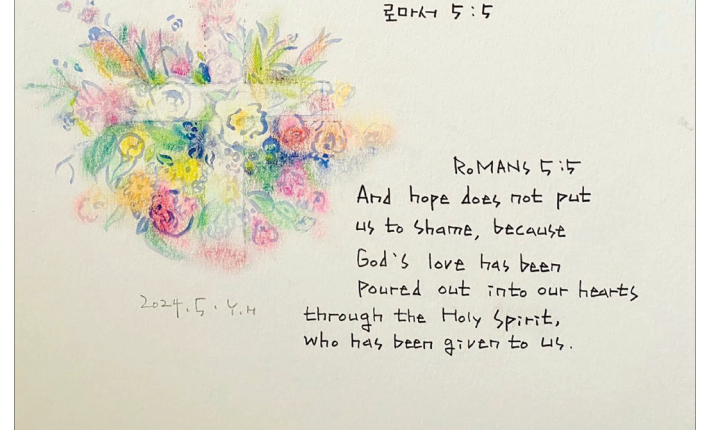 로마서 5:5
ROMANS 5:5
And hope does not put
us to shame, because
God's love has been
poured out into our hearts
through the Holy Spirit,
who has been given to us.
2024.5. Y.H